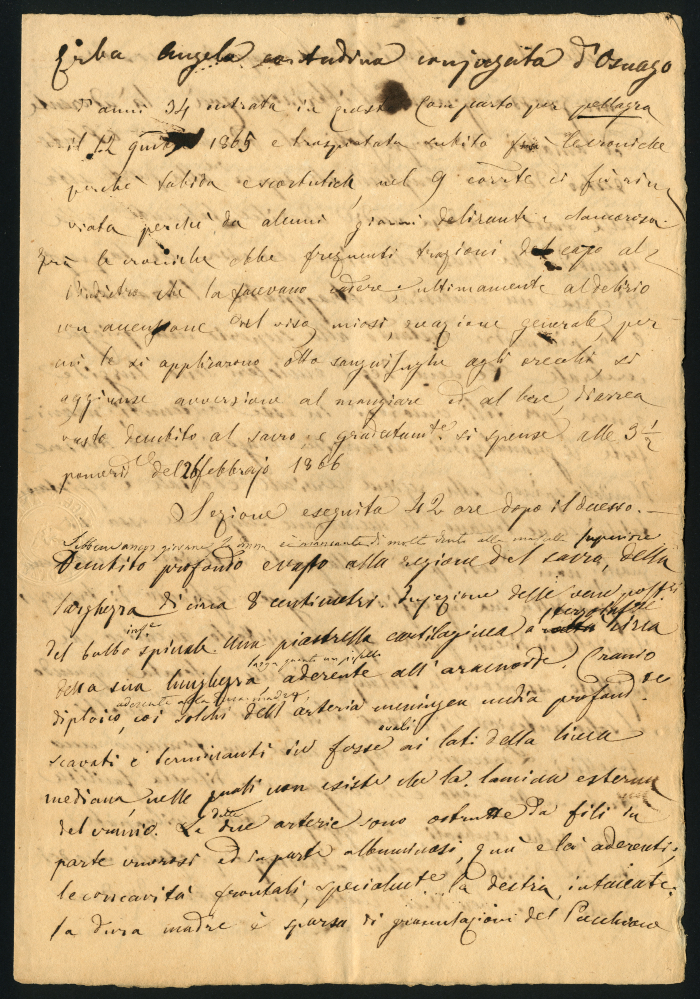 Erba Angela contadina conjugata d'Osnago
d'anni 34 entrata in questo Comparto per pellagra
il 12 1865 e trasportata subito fra le croniche
perchè tabida e scorbutica, nel 9 corrte ci fu rin
viata perchè da alcuni giorni delirante e clamorosa.
Fra le croniche ebbe frequenti trazioni del capo al
l'indietro che la facevano cadere, e ultimamente al delirio
con accensione del viso, miosi, reazione generale, per
cui le si applicarono otto sanguisughe agli orecchi, si
aggiunse avversione al mangiare ed al bere, diarrea
vasto decubito al sacro, e gradatamte si spense alle 3 1/2
pomerid del 26 febbrajo 1866
Sezione eseguita 42 ore dopo il decesso.
Sebbene ancor giovane la donna è mancante di molti denti alla mascella superiore
Decubito profondo e vasto alla regione del sacro, della
larghezza di circa 8 centimetri. Injezione delle vene postri
del bulbo spinale. Una piastrella cartilaginea al terzo infe circa
della sua lunghezza larga quanto un pisello aderente all'aracnoide. Cranio
diploico, aderente alla dura madre, coi solchi dell'arteria meningea media profondte
scavati e terminanti in fosse ovali ai lati della linea
mediana, nelle quali non esiste che la lamina esterna
del cranio. Le dette due arterie sono ostrutte da fili in
parte venosi ed in parte albuminosi, quà e là aderenti;
le concavità frontali, specialmte la destra, intaccate.
la dura madre è sparsa di granulazioni del Pacchioni